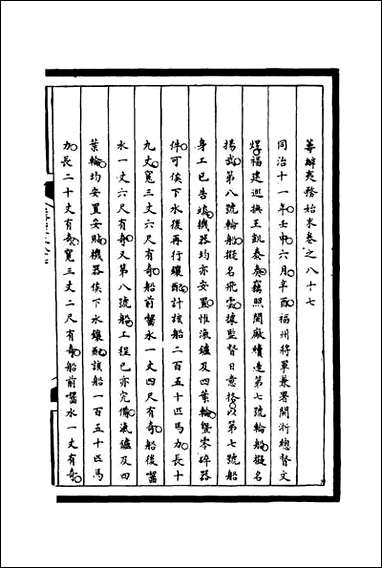 籌辦夷務始末卷之八十七
同治十一年壬申六月辛酉福州將軍兼署閩浙總督文
煜福建巡撫王凱泰奏竊照閩廠續造第七號輪船擬名
揚武第八號輪船擬名飛雲據監督日意格以第七號船
身工已告竣機器均亦安置惟汽鑪及四葉輪暨零碎器
件可俟下水後再行鑲配計該船二百五十匹馬力長十
九丈寬三丈六尺有奇船前嘴水一丈四尺有奇船後嘴
水一丈六尺有奇又第八號船工程已亦完備汽鑪及四
葉輪均安置安貼機器俟下水鑲配該船一百五十匹馬
力長二十丈有奇寬三丈二尺有奇船前嘴水一丈有奇